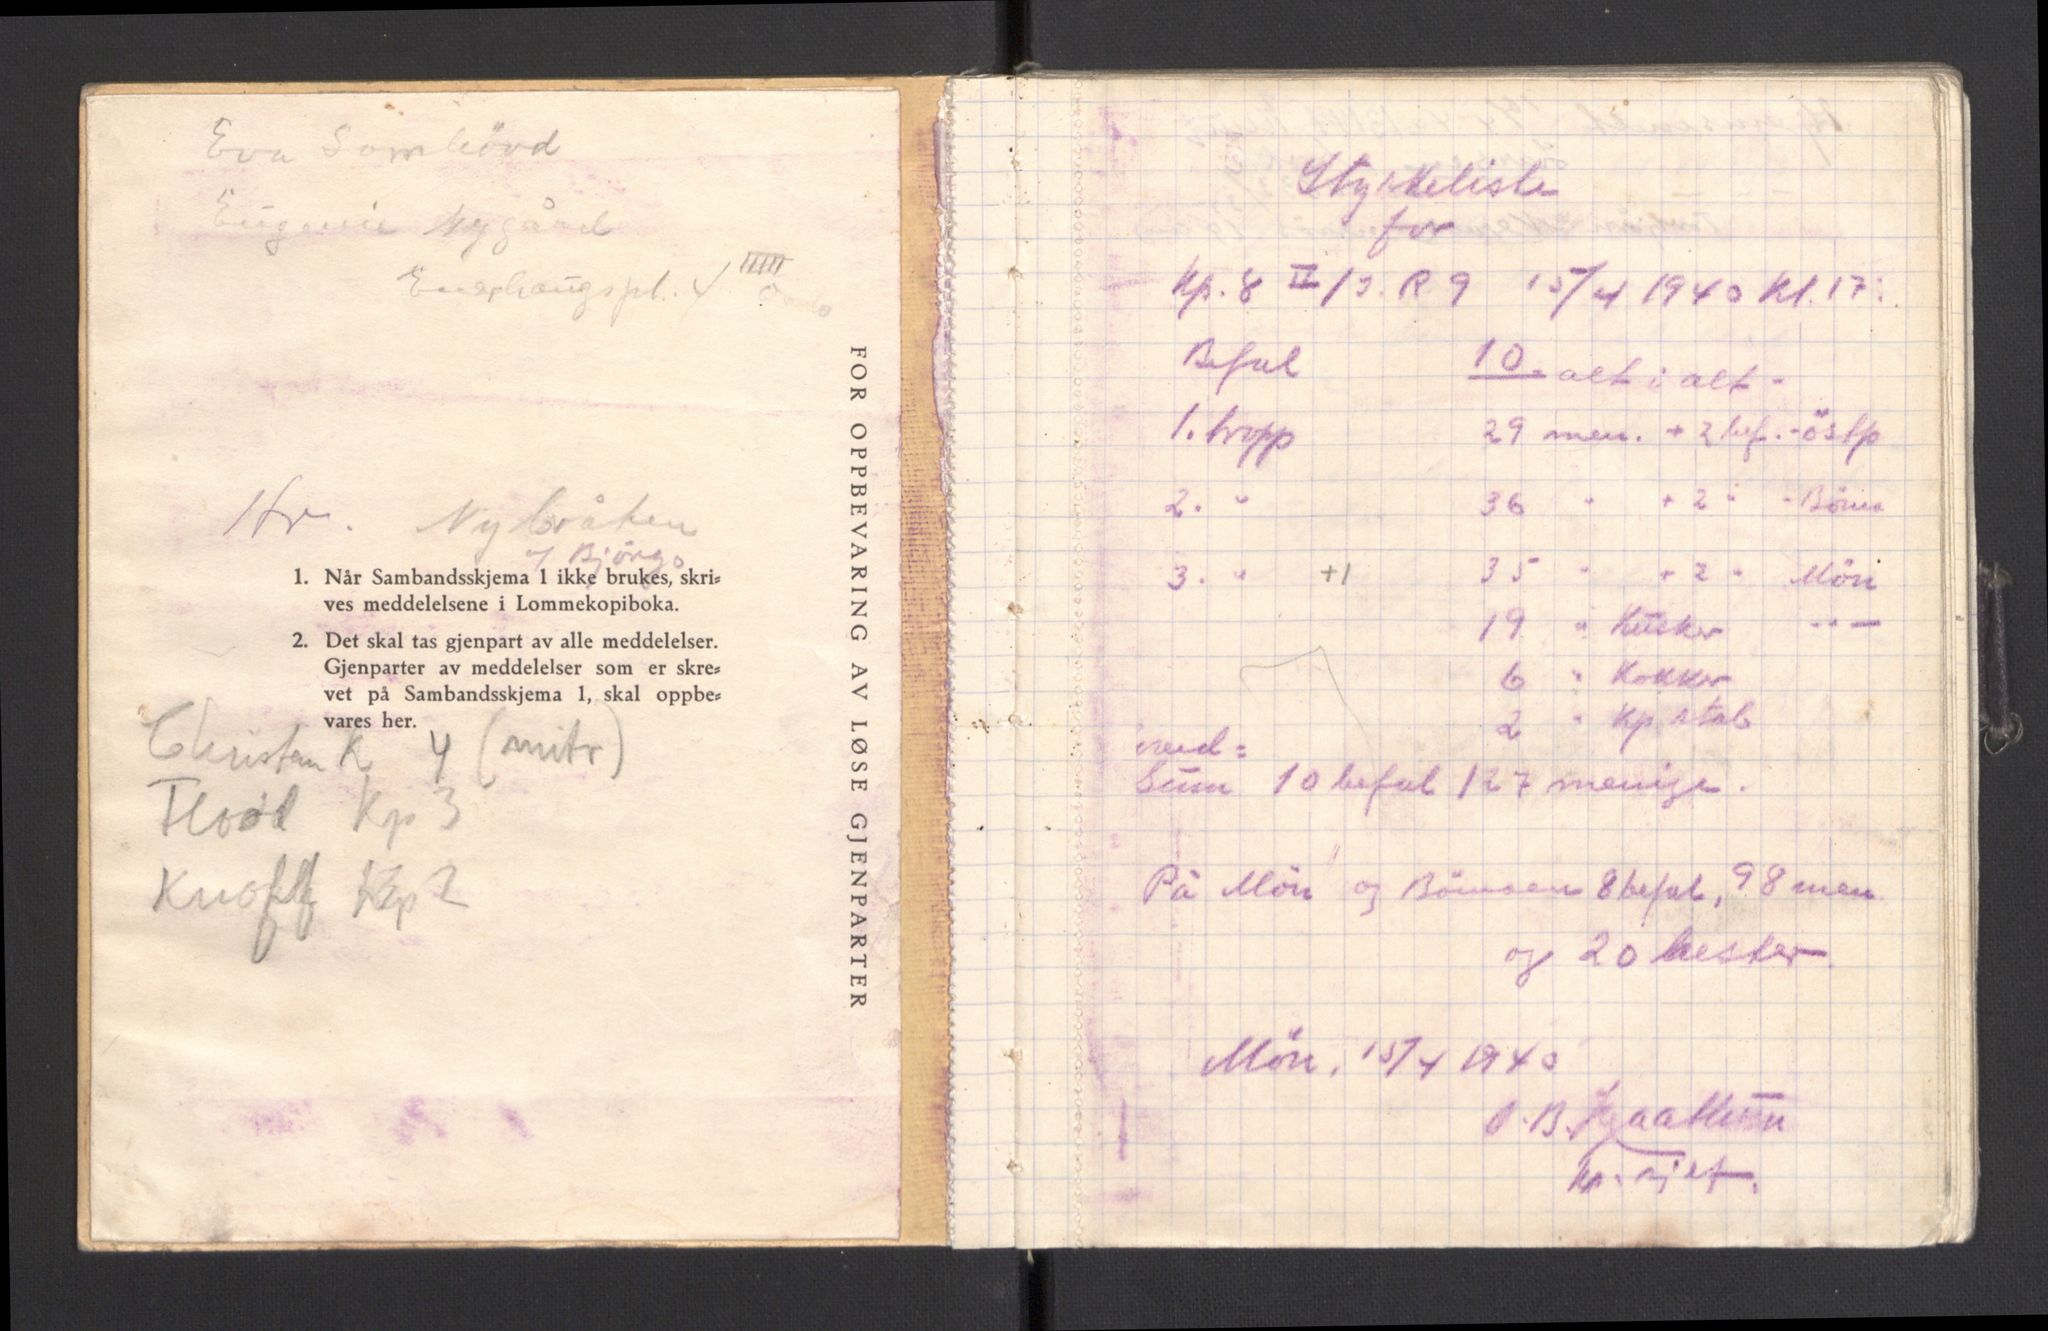 Eva Sømhövd
Eugenie Nygård
Enerhaugspl. 4
Oslo
Hr. Nybråten
og Björgo
1. Når Sambandsskjema 1 ikke brukes, skri-
ves meddelelsene i Lommekopiboka.
2. Det skal tas gjenpart av alle meddelelser.
Gjenparter av meddelelser som er skre-
vet på Sambandsskjema 1, skal oppbe-
vares her.
Christen K 4 (mitr)
Flood Kp 3
Knoff Kp 2
FOR OPPBEVARING AV LØSE GJENPARTER
Styrkeliste
for
Kp. 8 II/J. R 9 15/4 1940 Kl. 17:
Befal 10. alt i alt -
1. tropp 29 men. + 2 bef. - östp
2. " 36 " + 2 " - Bömo
3. " +1 35 " + 2 " Mön
19 " Kusker " —
6 " Kokker
2 " Kp stab
Sum 10 befal 127 menige.
På Mön og Bömoen 8 befal, 98 men
og 20 hester
Mön, 15/4 1940
Kp. sjef.